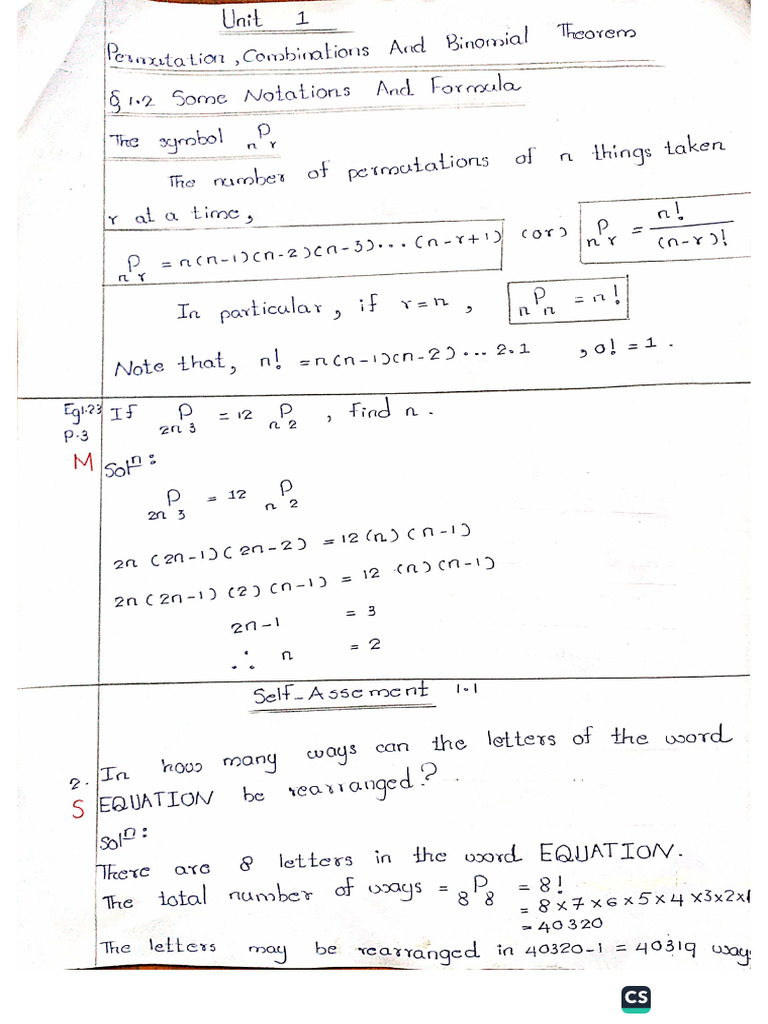 Unit 1
Permutation, Combinations And Binomial Theorem
§ 1.2 Some Notations And Formula
The symbol nPr
The number of permutations of n things taken
r at a time,
nPr = n(n-1)(n-2)(n-3)...(n-r+1) (or) nPr = n!/(n-r)!
In particular, if r=n, nPn = n!
Note that, n! = n(n-1)(n-2)... 2.1 , 0! = 1.
Eg1.23 If 2nP3 = 12 nP2 , find n.
P.3
M Solⁿ:
2nP3 = 12 nP2
2n (2n-1)(2n-2) = 12(n)(n-1)
2n(2n-1)(2)(n-1) = 12 (n)(n-1)
2n-1 = 3
∴ n = 2
Self-Assement 1.1
2. In how many ways can the letters of the word
S EQUATION be rearranged?
Solⁿ:
There are 8 letters in the word EQUATION.
The total number of ways = 8P8 = 8!
= 8×7×6×5×4×3×2×1
= 40320
The letters may be rearranged in 40320-1 = 40319 ways
CS